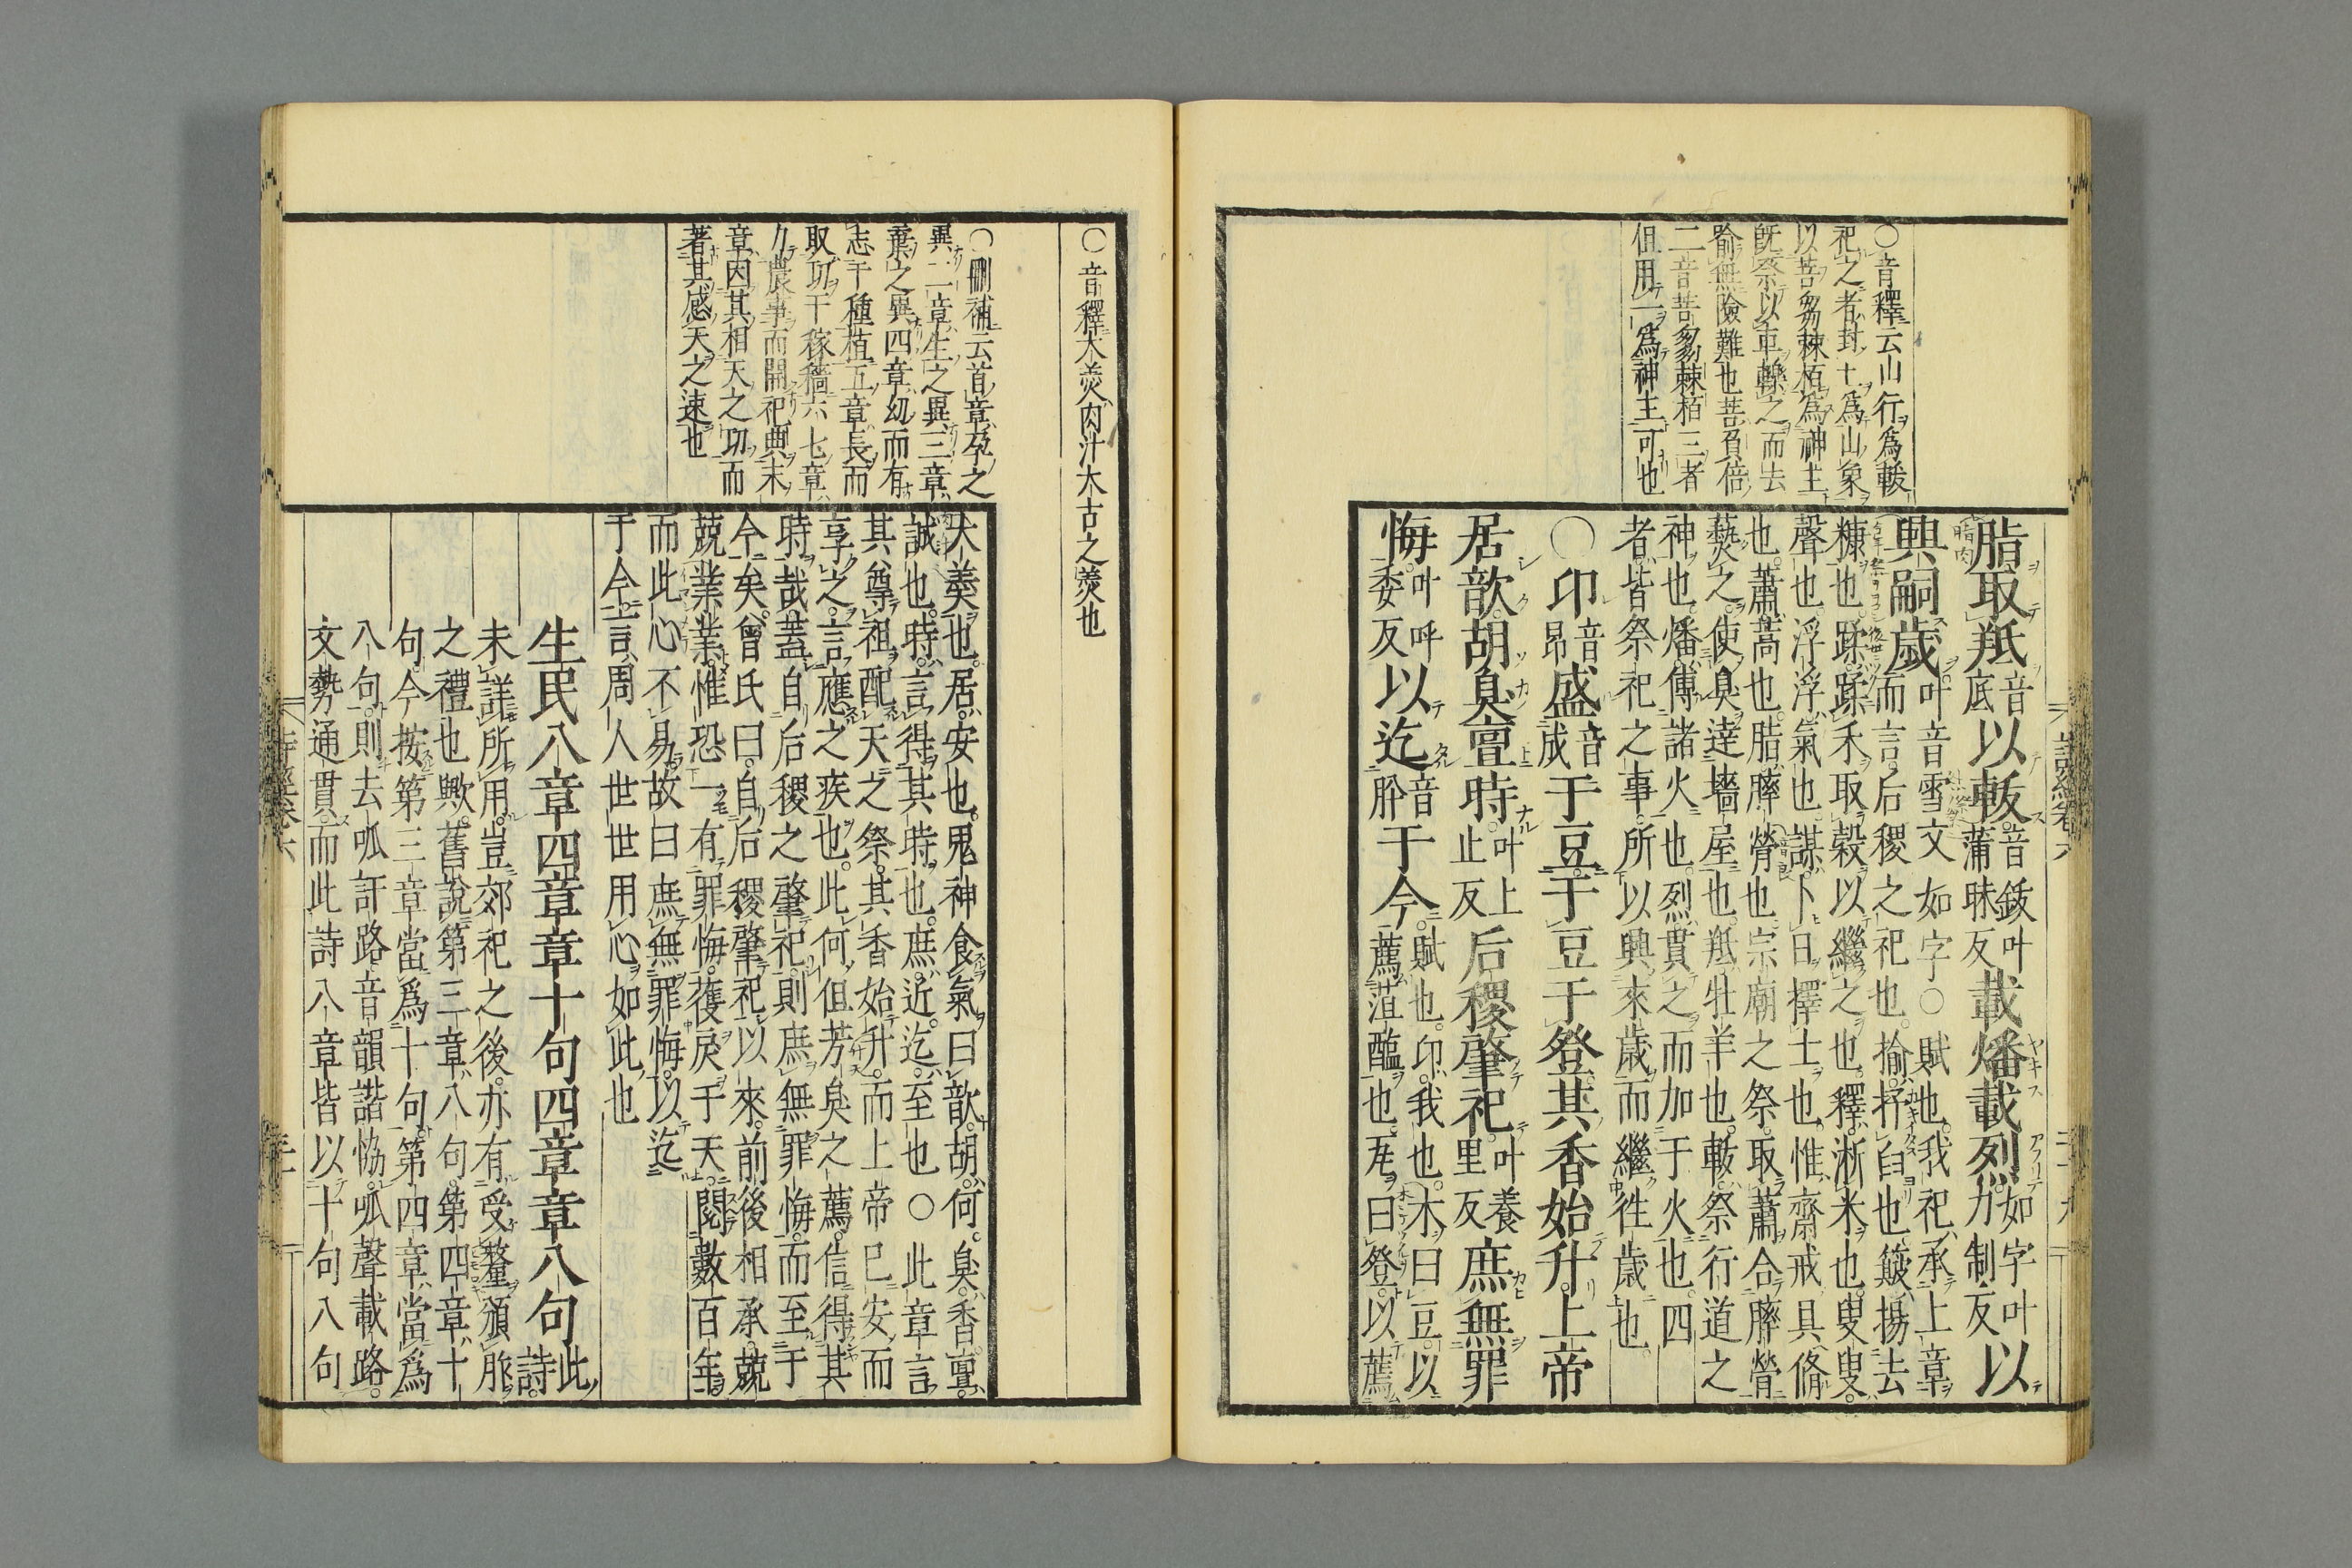 ○音釋云山行為軷
祀之者封土為山象
以菩芻棘栢為神主
既祭以車轢之而去
喻無險難也菩負倍
二音菩芻棘栢三者
但用一為神主可也
脂取羝音底以軷音鈸叶蒲昧反載燔載烈如字叶力制反以
興嗣歲叶音雪文如字○賦也我祀承上章而言后稷之祀也揄抒臼也簸揚去
糠也蹂蹂禾取穀以繼之也釋淅米也叟叟
聲也浮浮氣也謀卜日擇士也惟齋戒具脩
也蕭蒿也脂膟膋也宗廟之祭取蕭合膟膋
爇之使臭達墻屋也羝牡羊也軷祭行道之
神也燔傅諸火也烈貫之而加于火也四
者皆祭祀之事所以興來歲而繼往歲也
○卬音昂盛音成于豆于豆于登其香始升上帝
居歆胡臭亶時叶上止反后稷肇祀叶養里反庶無罪
悔叶呼委反以迄音肸于今賦也卬我也木曰豆以薦菹醢也瓦曰登以薦
○音釋大羙肉汁大古之羮也
○刪補云首章孕之
異二章生之異三章
棄之異四章幼而有
志于種植五章長而
取功于稼穡六七章
力農事而開祀典末
章因其相天之功而
著其感天之速也
大羙也居安也鬼神食氣曰歆胡何臭香亶
誠也時言得其時也庶近迄至也○此章言
其尊祖配天之祭其香始升而上帝已安而
享之言應之疾也此何但芳臭之薦信得其
時哉蓋自后稷之肇祀則庶無罪悔而至于
今矣曾氏曰自后稷肇祀以來前後相承兢
兢業業惟恐一有罪悔獲戾于天閱數百年
而此心不易故曰庶無罪悔以迄
于今言周人世世用心如此也
生民八章四章章十句四章章八句此詩
未詳所用豈郊祀之後亦有受釐頒胙
之禮也歟舊說第三章八句第四章十
句今按第三章當為十句第四章當為
八句則去呱訏路音韻諧協呱聲載路
文勢通貫而此詩八章皆以十句八句